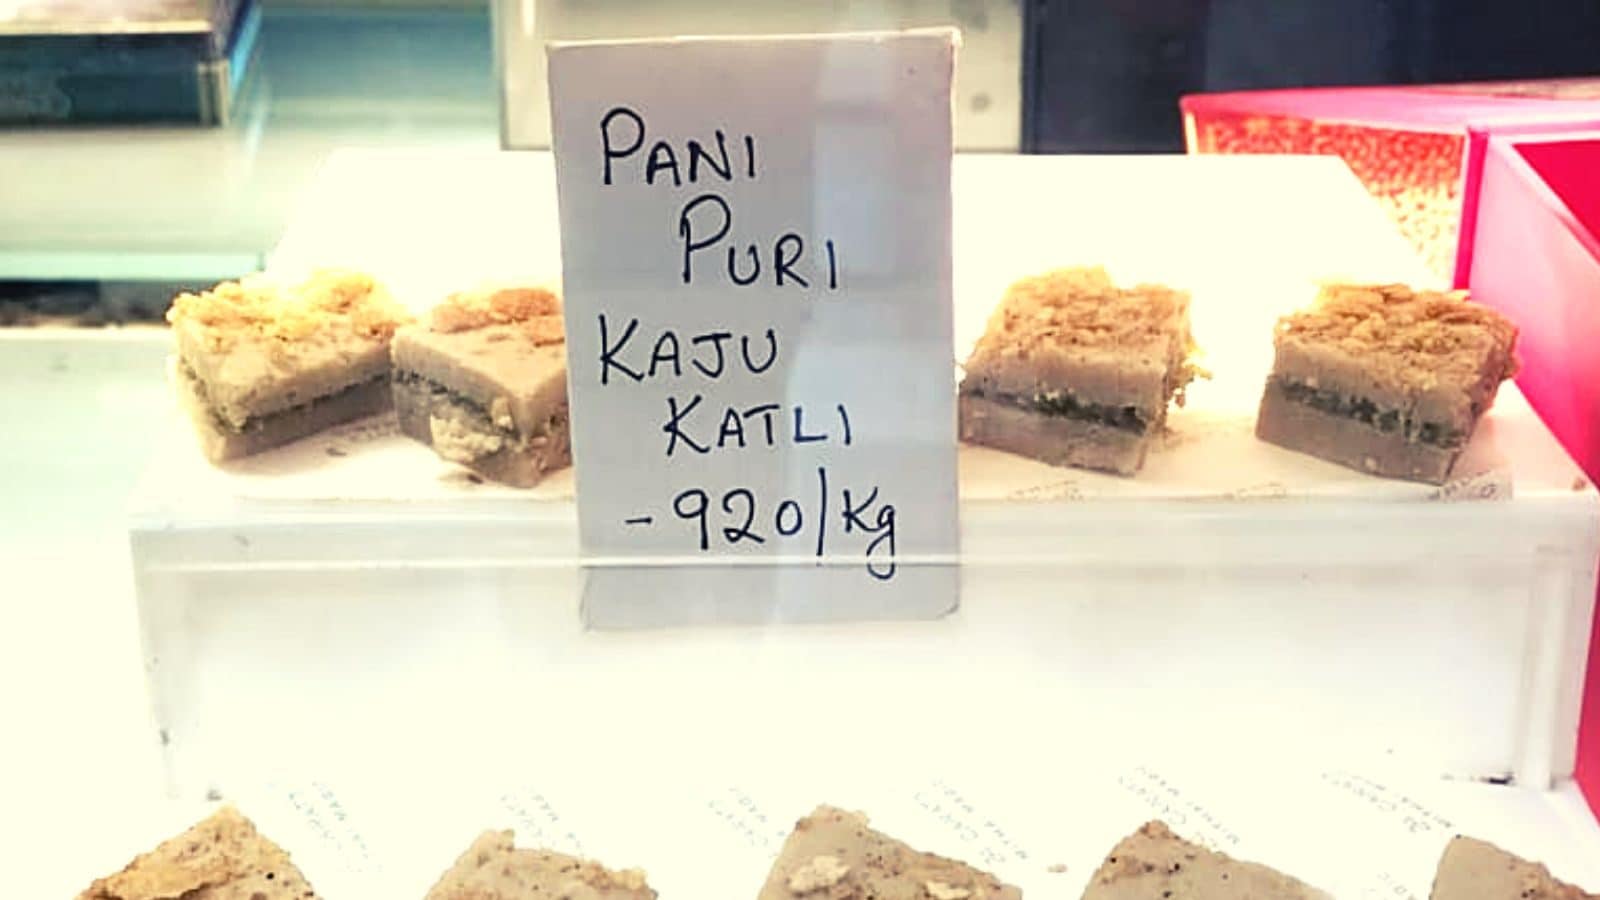 PANI
PURI
KAJU
KATLI
-920/Kg